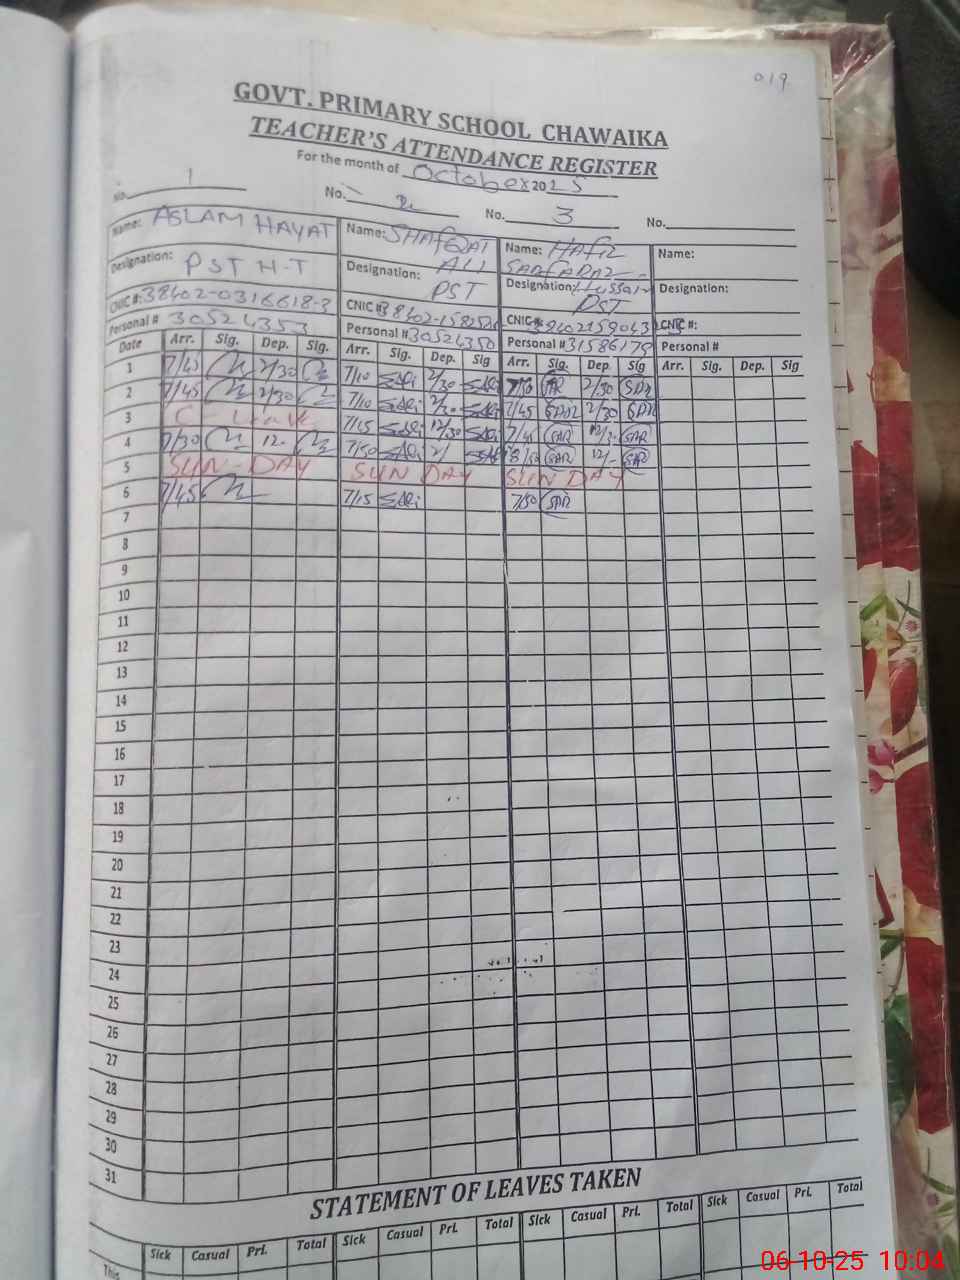 019
GOVT. PRIMARY SCHOOL CHAWAIKA
TEACHER'S ATTENDANCE REGISTER
For the month of October 2025
No. 1 No. 2 No. 3 No.
Name: ASLAM HAYAT Name: SHAFQAT ALI Name: HAFIZ SARFARAZ Hussain Name:
Designation: PST H-T Designation: PST Designation: PST Designation:
CNIC #: 38402-0316618-3 CNIC # 38402-158252 CNIC # 38402159043 CNIC #:
Personal # 30524353 Personal # 30524350 Personal # 31586179 Personal #
Date Arr. Sig. Dep. Sig. Arr. Sig. Dep. Sig Arr. Sig. Dep. Sig Arr. Sig. Dep. Sig
1 7/45 2/30 7/10 2/30 2/30
2 7/45 2/30 7/10 2/30 7/45 2/30
3 C-Leave 7/15 12/30 7/45
4 7/30 12- 7/50 12/-
5 SUN-DAY SUN DAY SUN DAY
6 7/45 7/15 7/50
7
8
9
10
11
12
13
14
15
16
17
18
19
20
21
22
23
24
25
26
27
28
29
30
31
STATEMENT OF LEAVES TAKEN
Sick Casual Pri. Total Sick Casual Pri. Total Sick Casual Pri. Total Sick Casual Pri. Total
This
06-10-25 10:04